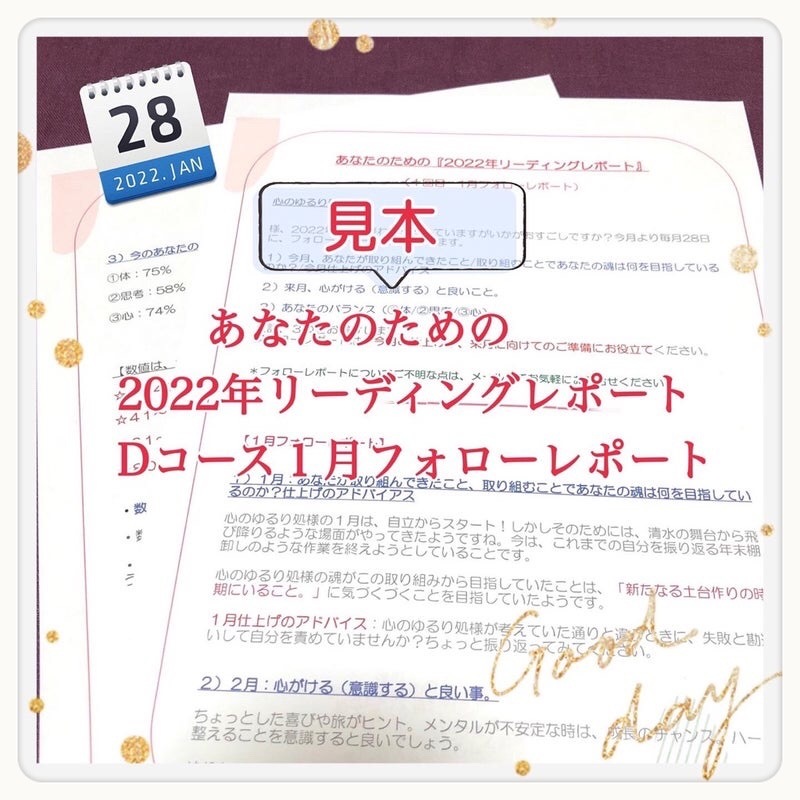 28
2022.JAN
あなたのための『2022年リーディングレポート』
1月フォローレポート）
心のゆるり
見本
様、2022年
していますがいかがおすごしですか？今月より毎月28日
に、フォロー
ます。
1）今月、あなたが取り組んできたこと/取り組むことであなたの魂は何を目指している
のか？/今月仕上げのアドバイス
2）来月、心がける（意識する）と良いこと。
3）あなたのバランス（①体/②思考/③心）
3）今のあなたの
①体：75%
②思考：58%
③心：74%
あなたのための
に向けてのご準備にお役立てください。
【数値は、
＊フォローレポートについてご不明な点は、メール
お気軽に
せください
2022年リーディングレポート
☆41～
【1月フォロー
ポート】
Dコース1月フォローレポート
1）1月：あなたが取り組んできたこと、取り組むことであなたの魂は何を目指してい
るのか？仕上げのアドバイアス
・数
心のゆるり処様の1月は、自立からスタート！しかしそのためには、清水の舞台から飛
び降りるような場面がやってきたようですね。今は、これまでの自分を振り返る年末棚
卸しのような作業を終えようとしていることです。
心のゆるり処様の魂がこの取り組みから目指していたことは、「新たなる土台作りの時
期にいること。」に気づくづくことを目指していたようです。
1月仕上げのアドバイス：心のゆるり処様が考えていた通りと違
ときに、失敗と勘
いして自分を責めていませんか？ちょっと振り返ってみてください。
Good
day
2）2月：心がける（意識する）と良い事。
ちょっとした喜びや旅がヒント。メンタルが不安定な時は、成長のチャンス、ハー
整えることを意識すると良いでしょう。